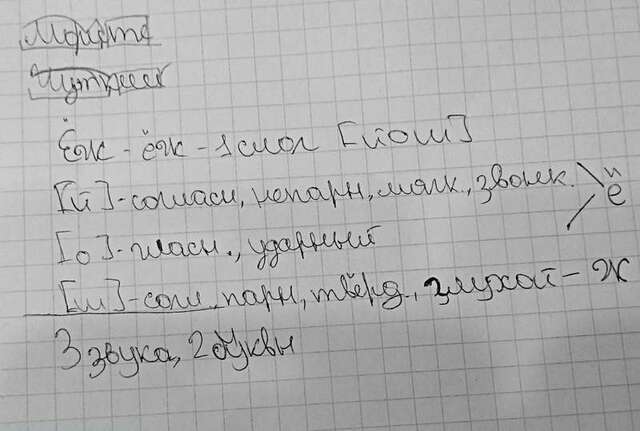 Ёж - ёж - 1 слог [йош]
[й] - согласн, непарн, мягк., звонк. \ й
[о] - гласн., ударный / ё
[ш] - согл. парн, твёрд., глухой - ж
3 звука, 2 буквы